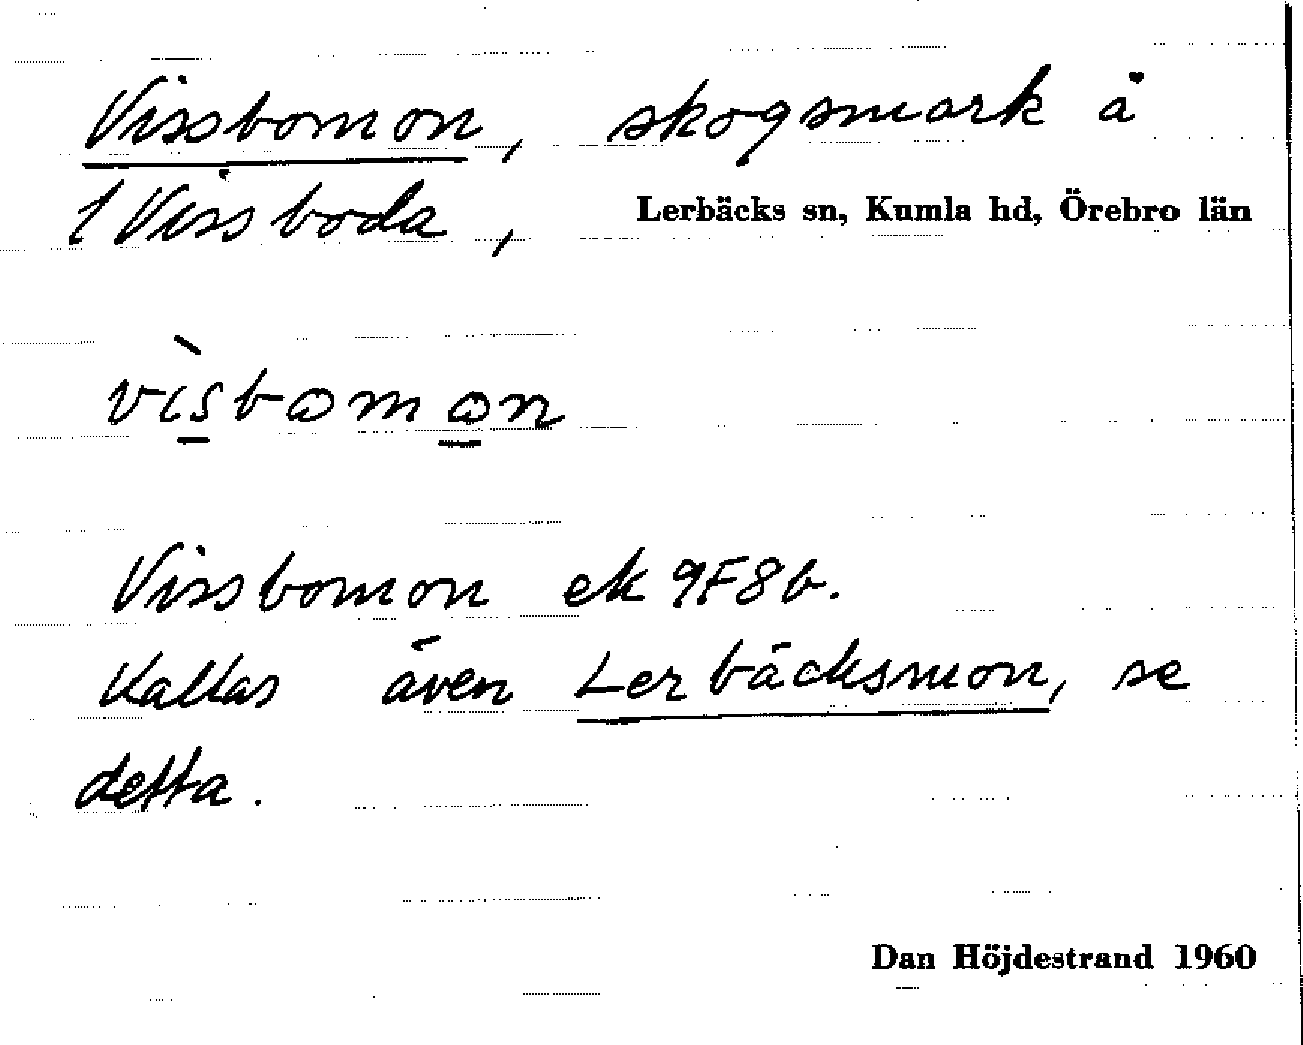 Vissbomon, skogsmark å
1 Vissboda, Lerbäcks sn, Kumla hd, Örebro län
vìsbomon
Vissbomon ek 9F8b.
Kallas även Lerbäcksmon, se
detta.
Dan Höjdestrand 1960